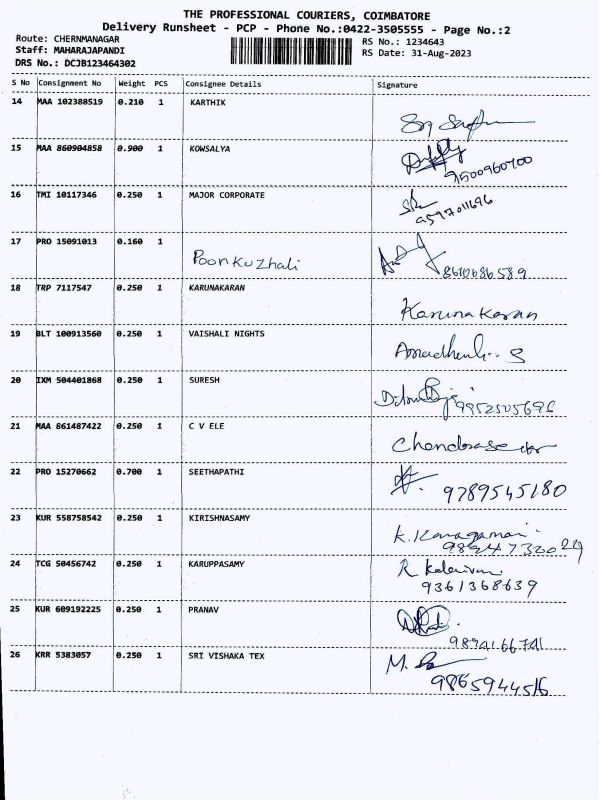 THE PROFESSIONAL COURIERS, COIMBATORE
Delivery Runsheet - PCP - Phone No.:0422-3505555 - Page No.:2
Route: CHERNMANAGAR
Staff: MAHARAJAPANDI
DRS No.: DCJB123464302
RS No.: 1234643
RS Date: 31-Aug-2023
S No Consignment No Weight PCS Consignee Details Signature
14 MAA 102388519 0.210 1 KARTHIK
15 MAA 860904858 0.900 1 KOWSALYA
9500960700
16 TMI 10117346 0.250 1 MAJOR CORPORATE
9597011696
17 PRO 15091013 0.160 1
Poonkuzhali
8610686589
18 TRP 7117547 0.250 1 KARUNAKARAN
Karunakaran
19 BLT 100913560 0.250 1 VAISHALI NIGHTS
20 IXM 504401868 0.250 1 SURESH
9952505696
21 MAA 861487422 0.250 1 C V ELE
22 PRO 15270662 0.700 1 SEETHAPATHI
9789545180
23 KUR 558758542 0.250 1 KIRISHNASAMY
24 TCG 50456742 0.250 1 KARUPPASAMY
9361368639
25 KUR 609192225 0.250 1 PRANAV
26 KRR 5383057 0.250 1 SRI VISHAKA TEX
9865944516